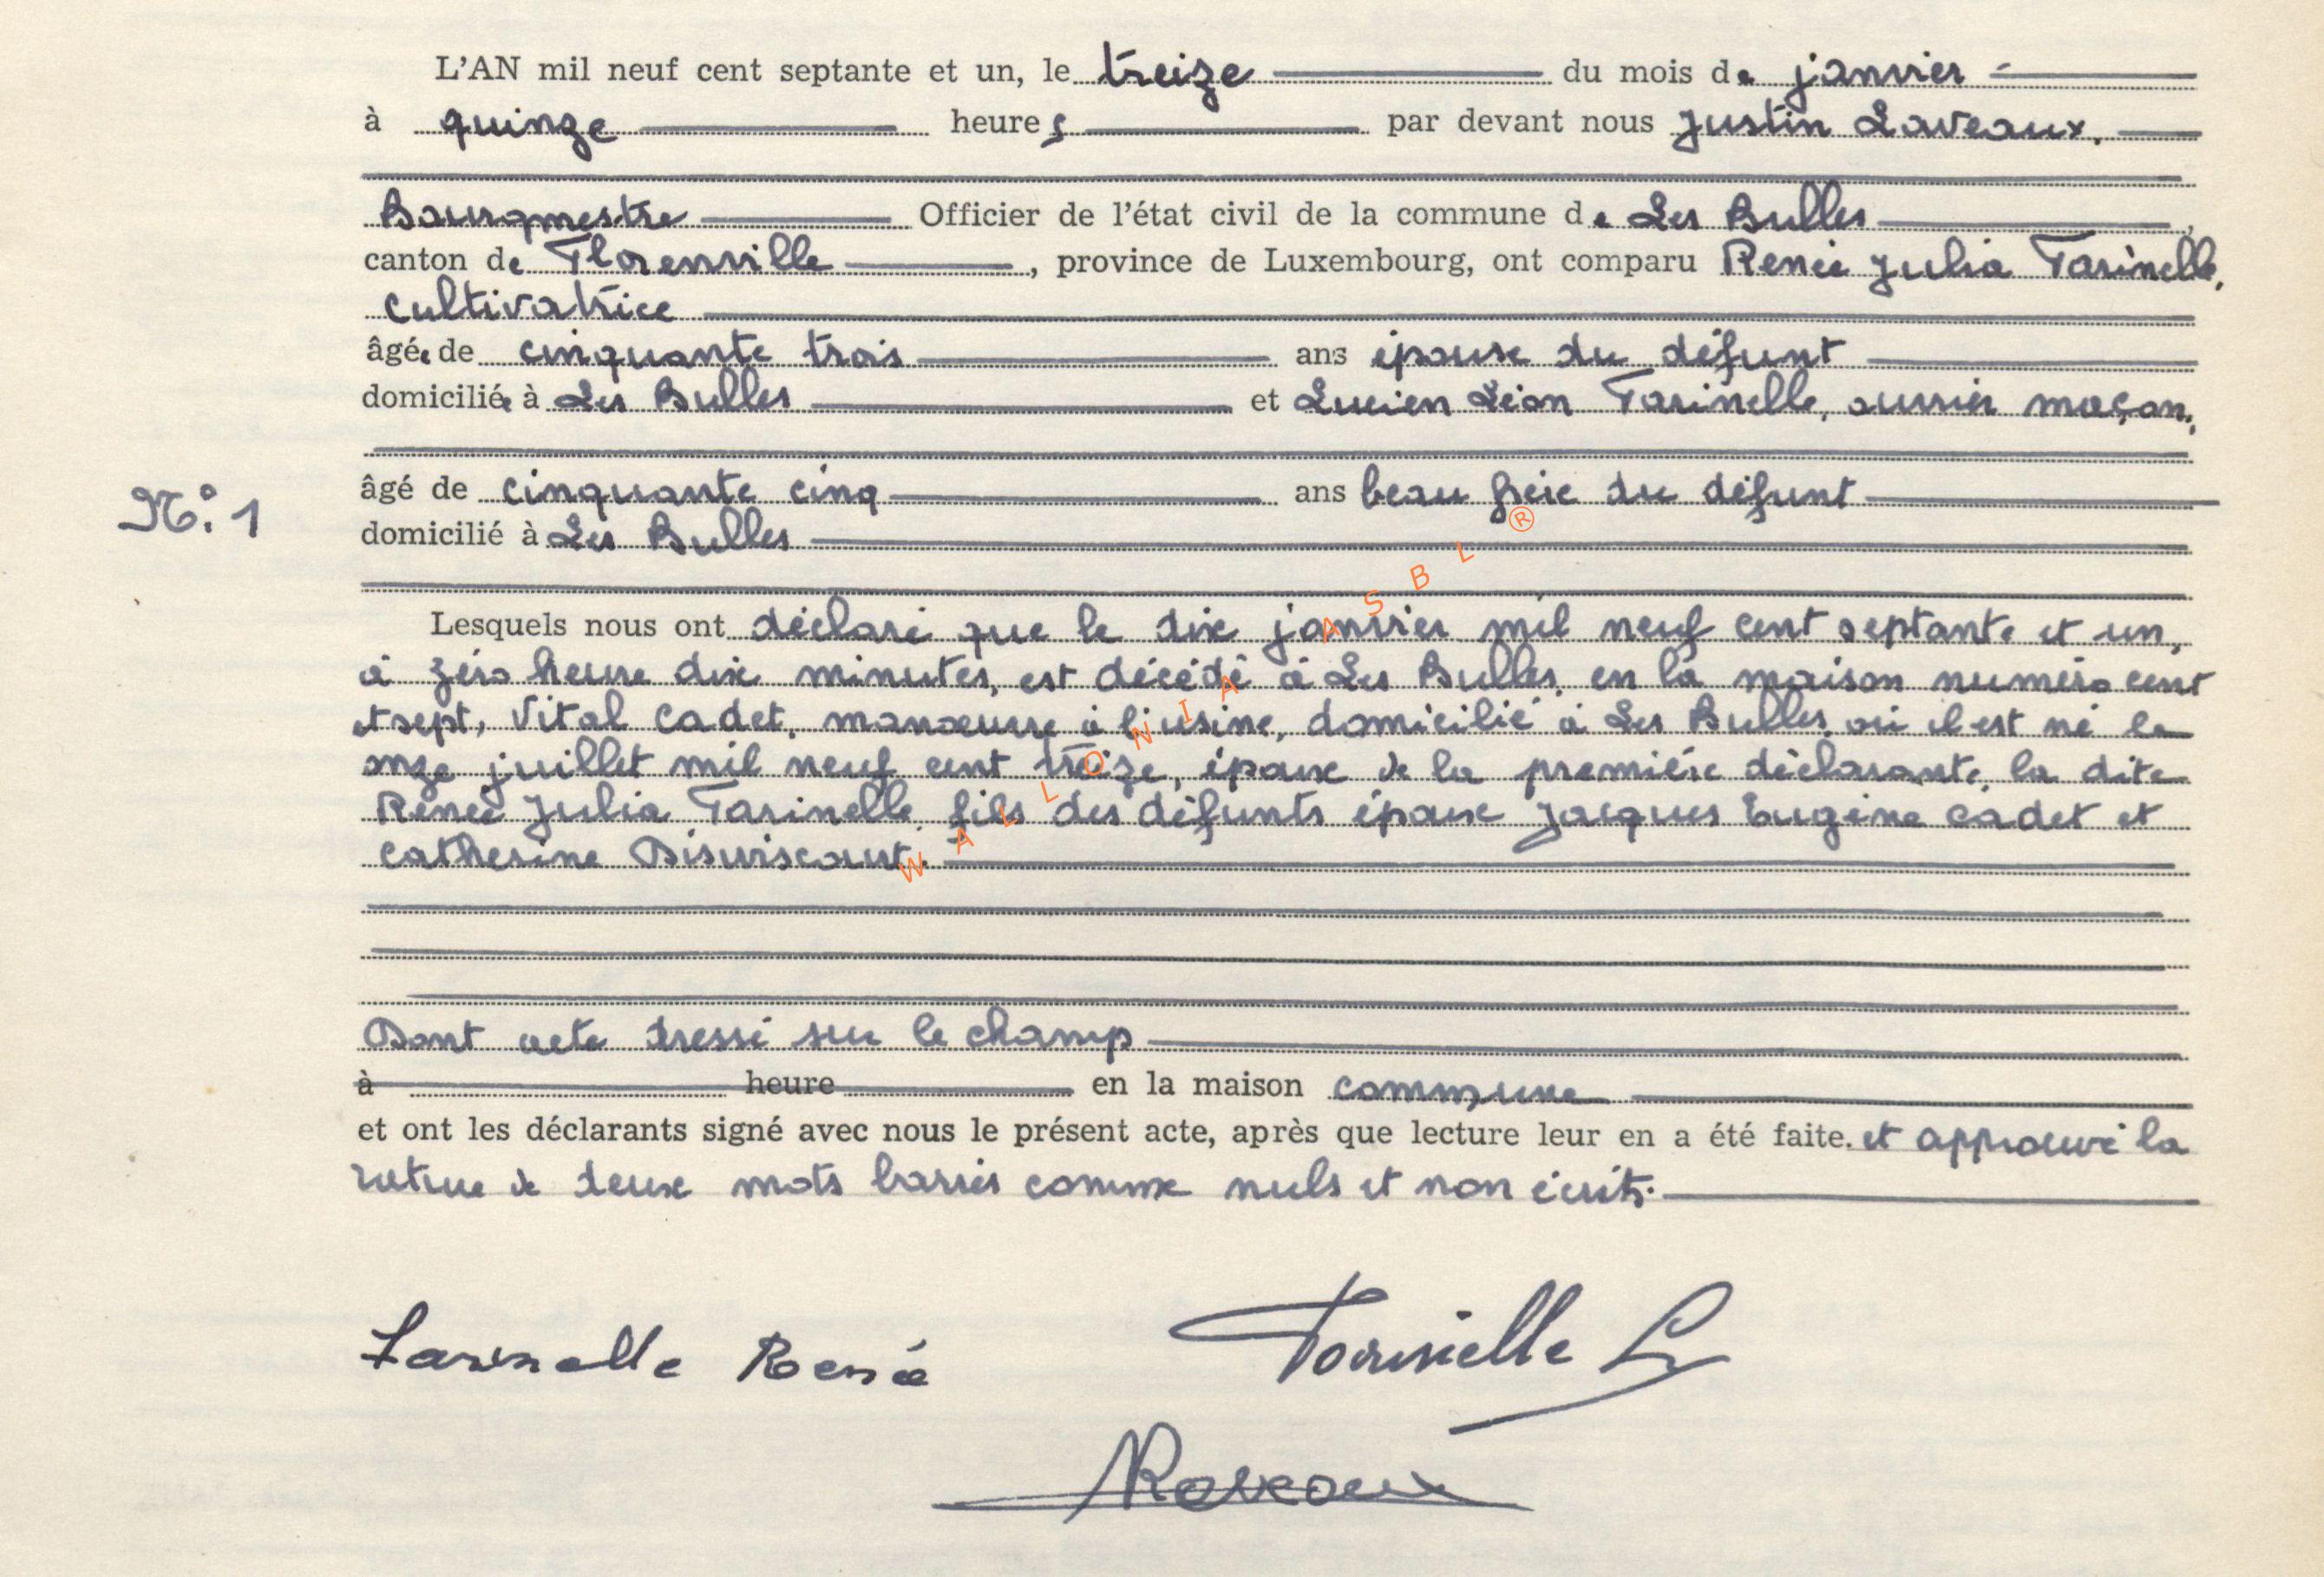 L'AN mil neuf cent septante et un, le treize du mois de janvier
à quinze heures par devant nous Justin Laveaux,
Bourgmestre Officier de l'état civil de la commune de Les Bulles,
canton de Florenville, province de Luxembourg, ont comparu Renée Julia Tarinelle,
cultivatrice
âgée de cinquante trois ans épouse du défunt
domiciliée à Les Bulles et Lucien Léon Tarinelle, ouvrier maçon,
N° 1
âgé de cinquante cinq ans beau frère du défunt
domicilié à Les Bulles
Lesquels nous ont déclaré que le dix janvier mil neuf cent septante et un,
à zéro heure dix minutes, est décédé à Les Bulles, en la maison numéro cent
et sept, Vital Cadet, manœuvre à l'usine, domicilié à Les Bulles, où il est né le
onze juillet mil neuf cent treize, époux de la première déclarante, la dite
Renée Julia Tarinelle, fils des défunts époux Jacques Eugène Cadet et
Catherine Disviscourt.
WALLONIA ASBL ®
Dont acte dressé sur le champ
à heure en la maison commune
et ont les déclarants signé avec nous le présent acte, après que lecture leur en a été faite. et approuvé la
rature de deux mots barrés comme nuls et non écrits.
Tarinelle Renée
Tarinelle L